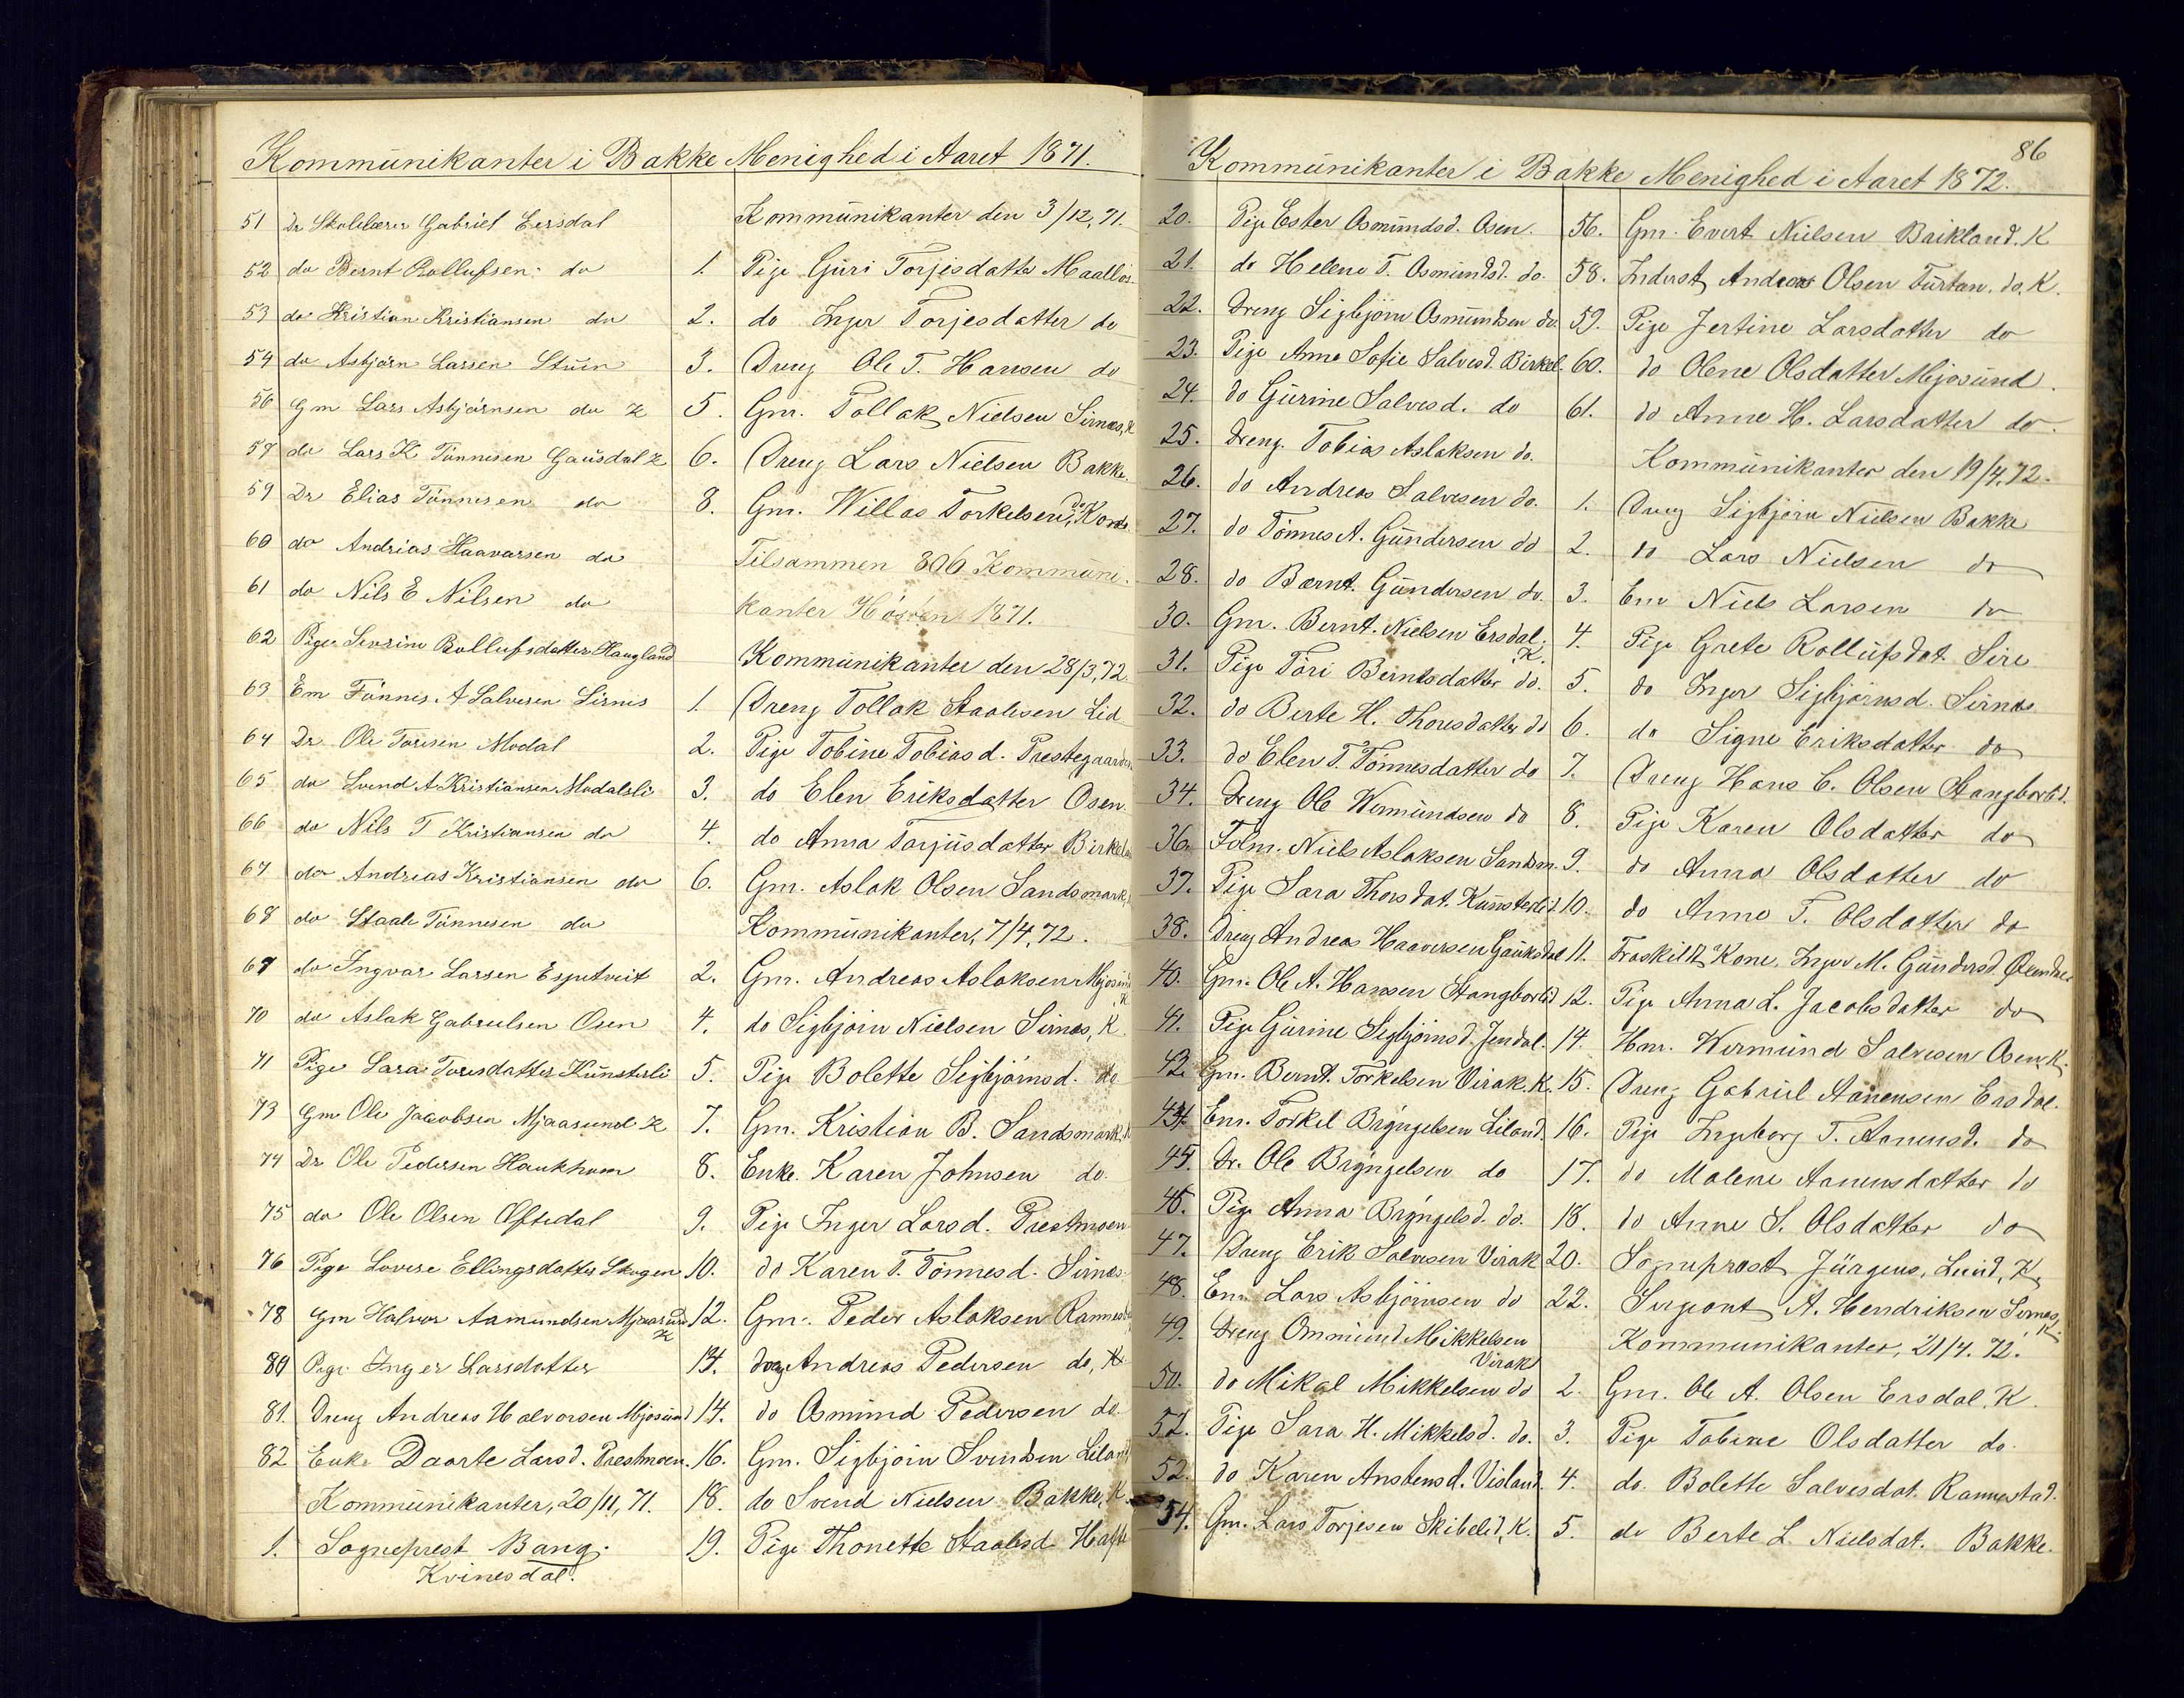 Kommünikanter i Bakke Menighed i Aaret 1871.
51 Dr Skolelærer Gabriel Eersdal
52 do Bernt Rollufsen do
53 do Kristian Kristiansen do
54 do Asbjörn Larsen Stüin
56 Gm Lars Asbjörnsen do K
57 do Lars K Tönnesen Gausdal K
59 Dr Elias Tönnesen do
60 do Andrias Haavarsen do
61 do Nils E Nilsen do
62 Pige Sevrine Rollufsdatter Haugland
63 Em Tönnis A Salvesen Sirnes
64 Dr Ole Toresen Modal
65 do Svend A Kristiansen Modalsli
66 do Nils T Kristiansen do
67 do Andrias Kristiansen do
68 do Staale Tönnesen do
69 do Ingvar Larsen Espetveit
70 do Aslak Gabrielsen Osen
71 Pige Sara Toresdatter Künsterli
73 Gm Ole Jacobsen Mjaasund K
74 Dr Ole Pedersen Haukhom
75 do Ole Olsen Øftedal
76 Pige Lovise Ellingsdatter Skogen
78 Gm Halvor Aamundsen Mjaasund K
80 Pige Inger Larsdatter
81. Dreng Andreas Halvorsen Mjosünd
82 Enke Daorte Larsd. Prestmoen.
Kommünikanter, 20/11, 71.
1. Sogneprest Bang.
Kvinesdal.
Kommünikanter den 3/12, 71.
1. Pige Güri Torjesdatter Maallos
2. do Inger Torjesdatter do
3. Dreng Ole T. Hansen do
5. Gm. Tollak Nielsen Sirnæs, K
6. Dreng Lars Nielsen Bakke.
8. Gm. Willas Torkelsen, do Kone
Tilsammen 306 Kommüni-
kanter Hösten 1871.
Kommünikanter den 28/3, 72.
1. Dreng Tollak Staalesen Lid
2. Pige Tobine Tobiasd. Prestegaarden
3. do Elen Eriksdatter Osen
4. do Anna Torjüsdatter Birkeland
6. Gm. Aslak Olsen Sandsmark,
Kommünikanter, 7/4, 72.
2. Gm. Andreas Aslaksen Mjosünd K
4. do Sigbjörn Nielsen Sirnæs, K
5. Pige Bolette Sigbjörnsd. do
7. Gm. Kristian B. Sandsmark, K
8. Enke. Karen Johnsen do.
9. Pige Inger Larsd. Prestmoen
10. do Karen T. Tönnesd. Sirnæs.
12. Gm. Peder Aslaksen Rannestad
14. Dreng Andreas Pedersen do, K
14. do Osmünd Pedersen do.
16. Gm. Sigbjörn Svendsen Liland
18. do Svend Nielsen Bakke, K.
19. Pige Thonette Staalesd.
86
Kommünikanter i Bakke Menighed i Aaret 1872.
20. Pige Ester Osmündsd. Osen.
21. do Helene T. Osmündsd. do.
22. Dreng Sigbjörn Osmündsen do.
23. Pige Anne Sofie Salvesd. Birkel.
24. do Gürine Salvesd. do
25. Dreng Tobias Aslaksen do.
26. do Andreas Salvesen do.
27. do Tönnes A. Gündersen do
28. do Bærnt. Gündersen do.
30. Gm. Bernt. Nielsen Ersdal. K.
31. Pige Töri Berntsdatter do.
32. do Berte H. Thoresdatter do
33. do Elen T. Tönnesdatter do
34. Dreng Ole Wermündsen do
36. Folm. Niels Aslaksen Sandsm.
37. Pige Sara Thorsdat. Künsterlid
38. Dreng Andreas Haaversen Gauksdal
40. Gm. Ole A. Hansen Stangborlid
41. Pige Gürine Sigbjörnsd. Jendal.
42. Gm. Bernt. Torkelsen Virak. K.
43. Em. Torkel Bryngelsen Liland.
45. Dr. Ole Bryngelsen do
46. Pige Anna Bryngelsd. do.
47. Dreng Erik Salvesen Virak
48. Em. Lars Asbjörnsen do
49. Dreng Ommünd Mikkelsen Virak
50. do Mikal Mikkelsen do
51. Pige Sara H. Mikkelsd. do.
52. do Karen Anstensd. Visland.
54. Gm. Lars Torjesen Skibelid, K.
56. Gm. Evert Nielsen Briklaud. K
58. Inderst Andreas Olsen Türtan. do. K.
59. Pige Jertine Larsdatter do
60. do Olene Olsdatter Mjosünd.
61. do Anne H. Larsdatter do.
Kommünikanter den 19/4, 72.
1. Dreng Sigbjörn Nielsen Bakke
2. do Lars Nielsen do
3. Em Niels Larsen do
4. Pige Grete Rollüfsdat Sire
5. do Inger Sigbjörnsd. Sirnæs
6. do Signe Eriksdatter do
7. Dreng Hans C. Olsen Stangborlid.
8. Pige Karen Olsdatter do
9. do Anna Olsdatter do
10. do Anne T. Olsdatter do
11. Fraskildt Kone, Inger M. Gündersd.
12. Pige Anna L. Jacobsdatter do
14. Hm. Wermünd Salvesen Osen, K.
15. Dreng Gabriel Aanensen Ersdal.
16. Pige Ingeborg T. Aanensd. do
17. do Malene Aanensdatter do
18. do Anne S. Olsdatter do
20. Sogneprost Jürgens, Lund, K
22. Sergeant A. Hendriksen Sirnæs, K.
Kommunikanter, 21/4. 72.
2. Gm. Ole A. Olsen Ersdal. K.
3. Pige Tobine Olsdatter do.
4. do. Bolette Salvesdat. Rannestad.
5. do Berte L. Nielsdat. Bakke.